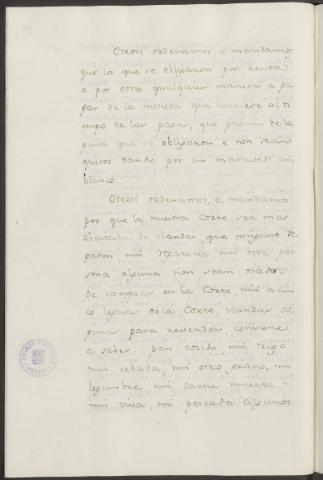 Otrosi ordenamos e mandamos
que los que se obligaron por renta
o por otra qualquier manera a pa
gar de la moneda que corriere al ti
empo de las pagas, que paguen de la
que se obligaron e non sean
quitos dando por un maravedi un
blanco.
Otrosi ordenamos, e mandamos
por que la nuestra Corte sea mas
abastada de viandas, que ningunt Re
gaton, nin Regatona nin otra per
sona alguna non sean osados
de comprar en la Corte, nin a cin
co leguas de la Corte, viandas al
gunas para revender conviene
a saber, pan cosido, nin trigo
nin cebada, nin otro grano, nin
legumbre nin carne muerta
nin viva, nin pescados algunos